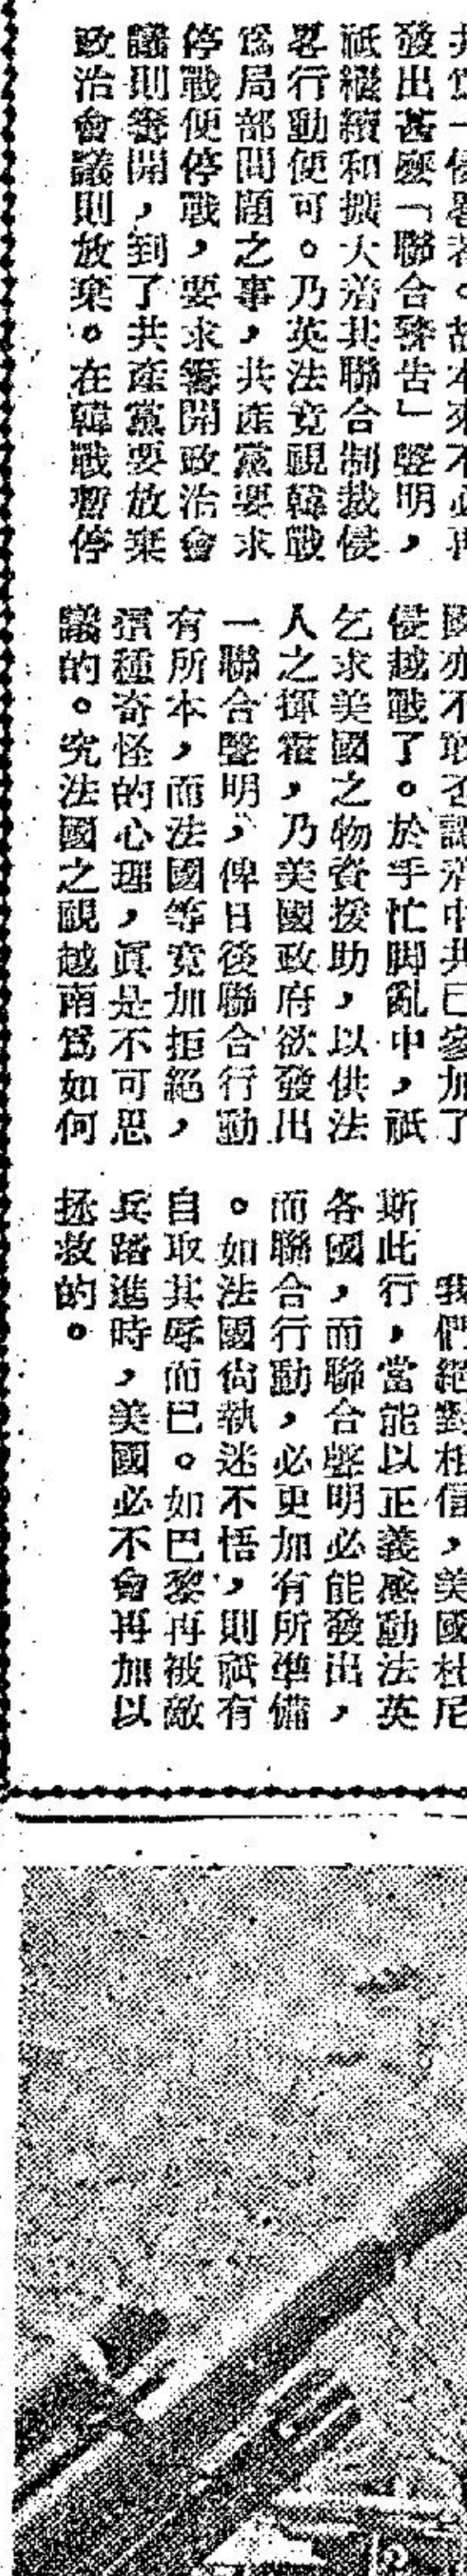 發出甚麼「聯合警告」聲明，
祇繼續和擴大着其聯合制裁侵
畧行動便可。乃英法竟視韓戰
爲局部問題之事，共產黨要求
停戰便停戰，要求籌開政治會
議則籌開，到了共產黨要放棄
政治會議則放棄。在韓戰暫停
國亦不敢否認清中共已參加了
侵越戰了。於手忙脚亂中，祇
乞求美國之物資援助，以供法
人之揮霍，乃美國政府欲發出
一聯合聲明，俾日後聯合行動
有所本，而法國等竟加拒絕，
這種奇怪的心理，眞是不可思
議的。究法國之視越南爲如何
我們絕對相信，美國杜尼
斯此行，當能以正義感動法英
各國，而聯合聲明必能發出，
而聯合行動，必更加有所準備
。如法國尙執迷不悟，則祇有
自取其辱而已。如巴黎再被敵
兵踏進時，美國必不會再加以
拯救的。